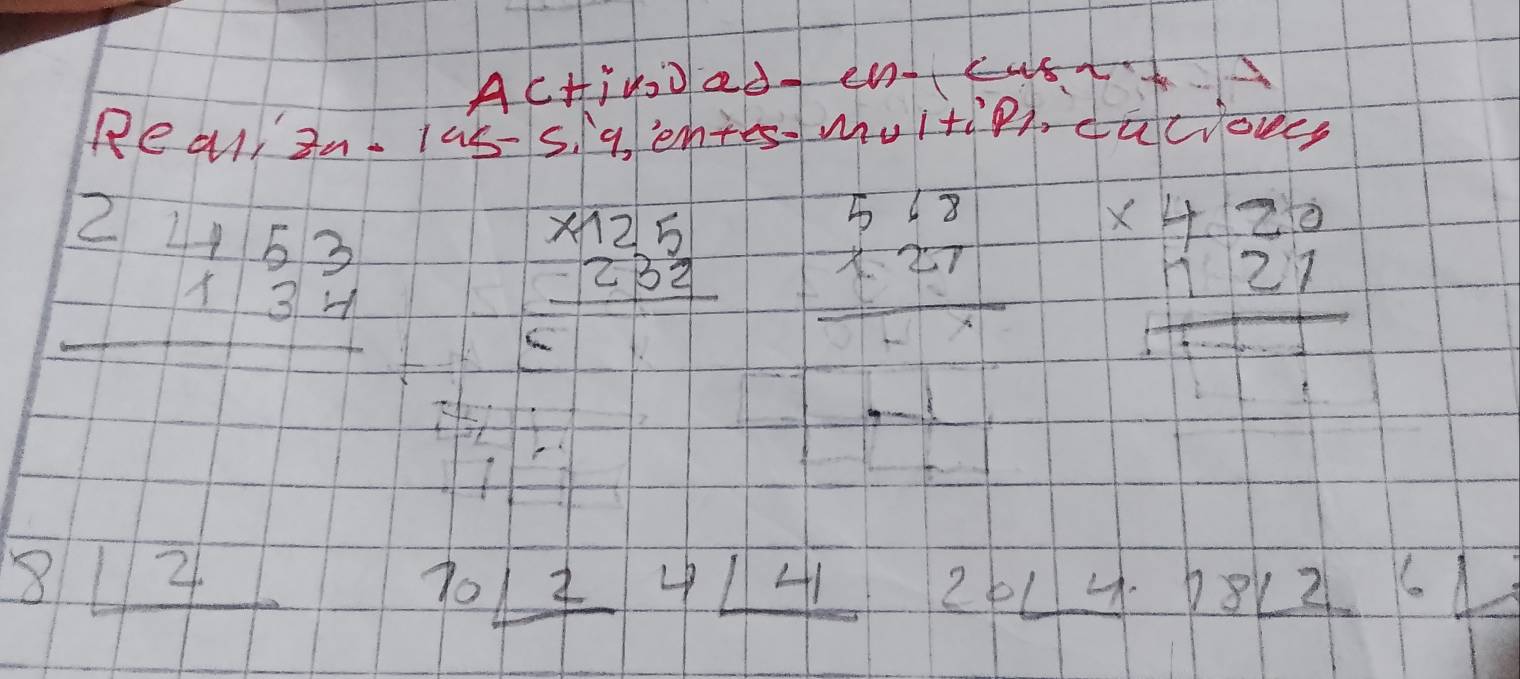 Actividad en casa
Realiza las sigientes multiplicaciones
2 4 5 3 x125 5 6 8 x 4 20
x 3 4 232 x 27 1 21
8 2 10 2 4 4 20 4 18 2 6